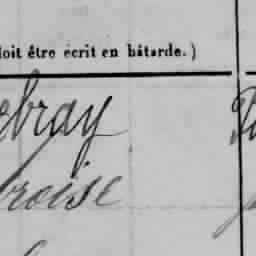 doit être écrit en bâtarde.)
ebray
roise